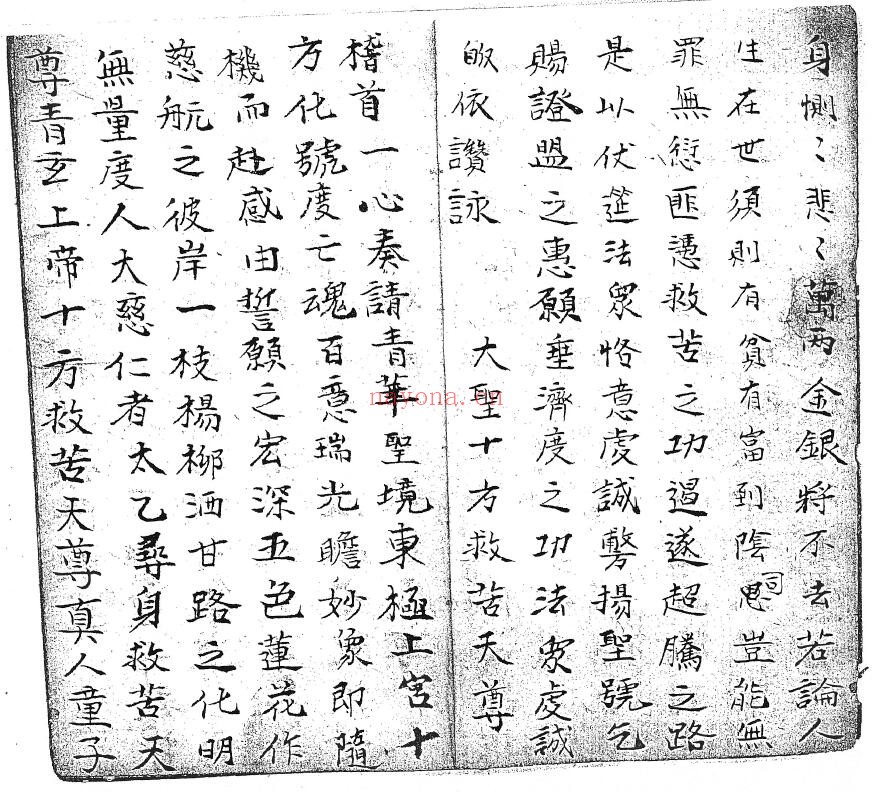 身惻〻悲〻萬両金銀將不去若論人
生在世須則有貧有富到陰思司豈能無
罪無愆匪憑救苦之功過遂超騰之路
是以伏筵法衆恪意虔誠謦揚聖號乞
賜證盟之惠願垂濟度之功法衆虔誠
皈依讚詠 大聖十方救苦天尊
稽首一心奏請青華聖境東極上宮十
方化號度亡魂百憶瑞光瞻妙象即隨
機而赴感由誓願之宏深五色蓮花作
慈航之彼岸一枝楊柳洒甘路之化明
無量度人大慈仁者太乙尋身救苦天
尊青玄上帝十方救苦天尊真人童子
nayona.cn